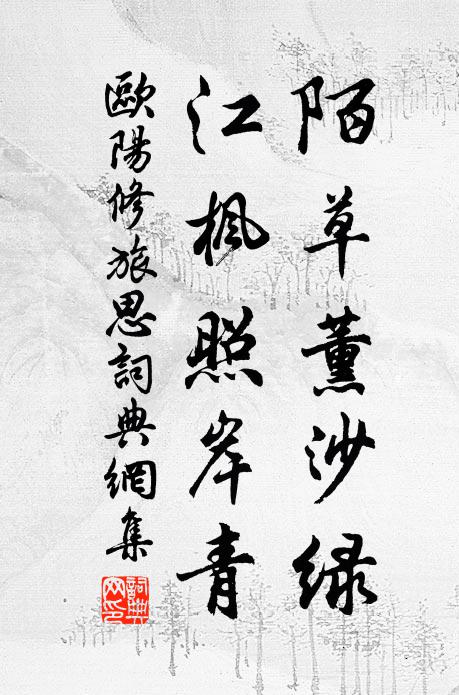 陌草薰沙绿
江楓照岸青
歐陽修旅思詞典網集
詞典網印